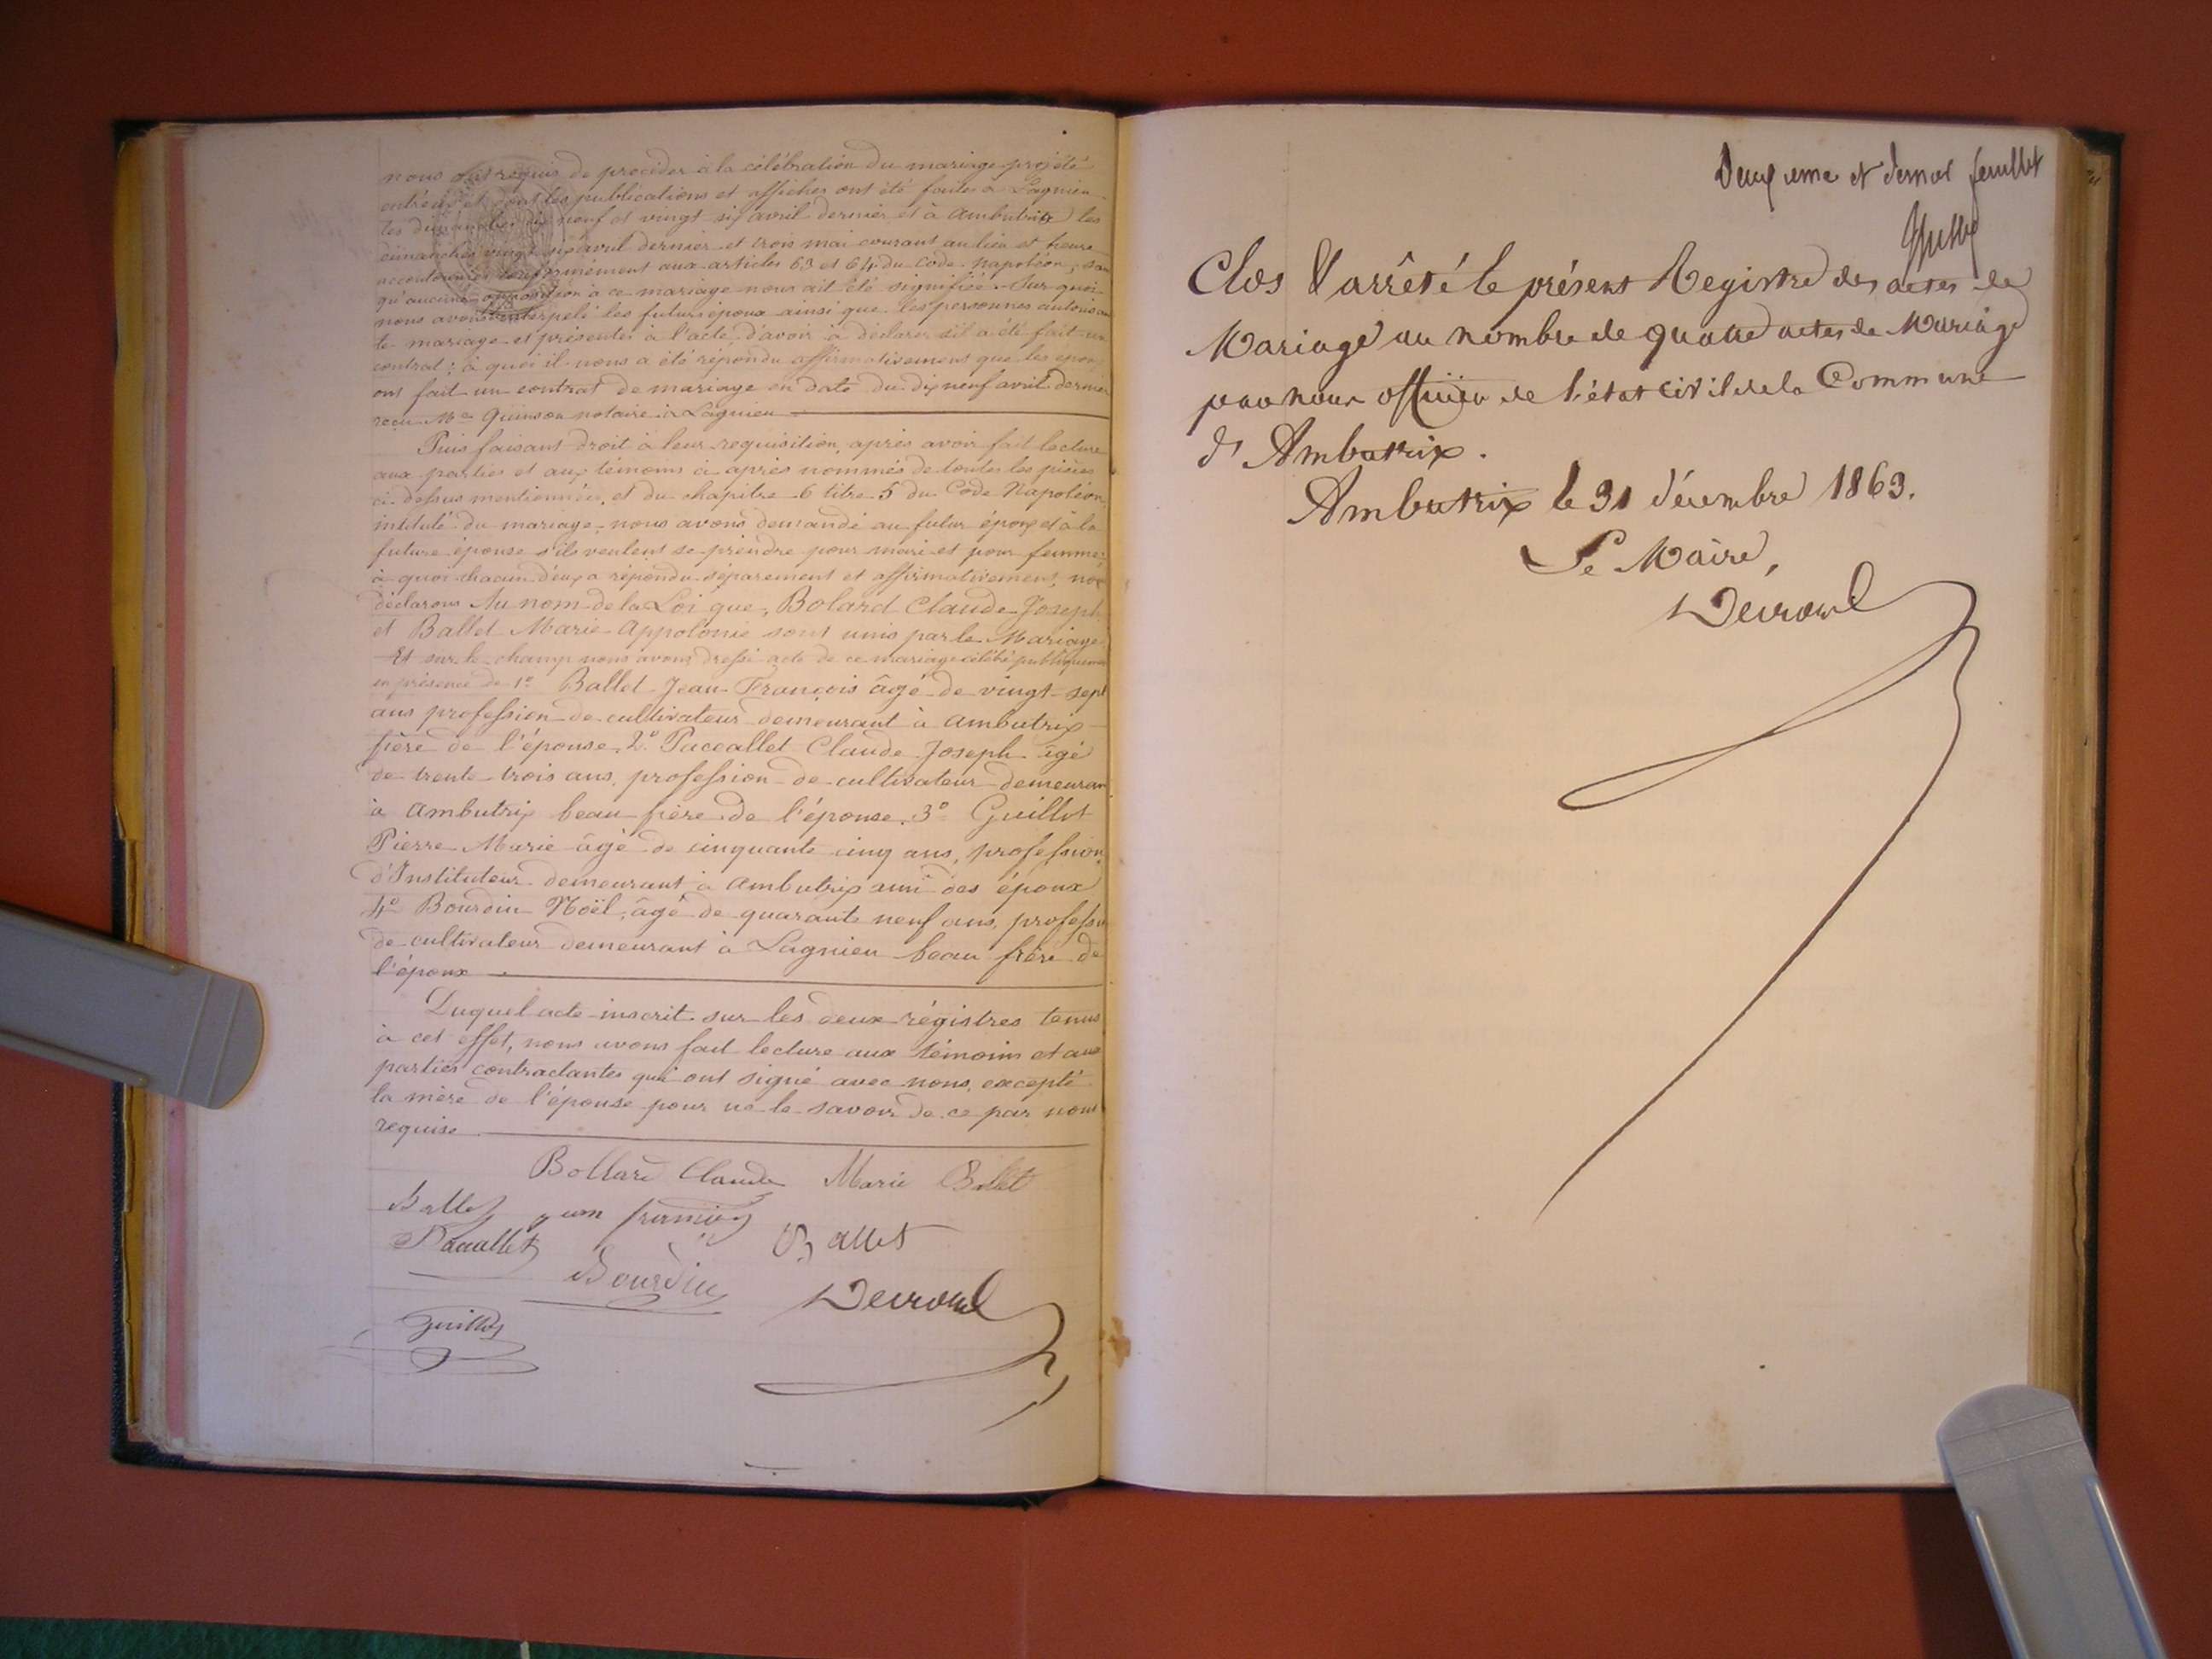 nous ont requis de procéder à la célébration du mariage projété
entr'eux et dont les publications et affiches ont été faites à Lagnieu
les dimanches dix neuf et vingt six avril dernier et à Ambutrix les
dimanches vingt six avril dernier et trois mai courant au lieu et heure
accoutumés conformément aux articles 63 et 64 du Code Napoléon, sans
qu'aucune opposition à ce mariage nous ait été signifiée. Sur quoi
nous avons interpelé les futurs époux ainsi que les personnes autorisant
le mariage et présentes à l'acte, d'avoir à déclarer s'il a été fait un
contrat ; à quoi il nous a été répondu affirmativement que les époux
ont fait un contrat de mariage en date du dix neuf avril dernier
reçu Me Quinson notaire à Lagnieu
Puis faisant droit à leur requisition, après avoir fait lecture
aux parties et aux témoins ci après nommés de toutes les pièces
ci-dessus mentionnées, et du chapitre 6 titre 5 du Code Napoléon,
intitulé du mariage, nous avons demandé au futur époux et à la
future épouse s'ils veulent se prendre pour mari et pour femme ;
à quoi chacun d'eux a répondu séparement et affirmativement, nous
déclarons Au nom de la Loi que, Bolard Claude Joseph
et Ballet Marie Appolonie sont unis par le Mariage
Et sur le champ nous avons dressé acte de ce mariage célébré publiquement
en présence de 1o Ballet Jean François âgé de vingt-sept
ans profession de cultivateur demeurant à Ambutrix
frère de l'épouse, 2o Paccallet Claude Joseph âgé
de trente-trois ans, profession de cultivateur demeurant
à Ambutrix beau frère de l'épouse. 3o Guillot
Pierre Marie âgé de cinquante cinq ans, profession
d'Instituteur demeurant à Ambutrix ami des époux
4o Bourdin Noël, âgé de quarante neuf ans, profession
de cultivateur demeurant à Lagnieu beau frère de
l'époux
Duquel acte inscrit sur les deux régistres tenus
à cet effet, nous avons fait lecture aux témoins et aux
parties contractantes qui ont signé avec nous, excepté
la mère de l'épouse pour ne le savoir de ce par nous
requise
Bollard Claude Marie Ballet
Ballet jean francois
Pacallet Ballet
Bourdin
Guillot
Deuxieme et dernier feuillet
Clos & arrêté le présent Registre des actes de
Mariage au nombre de quatre actes de Mariage
par nous officier de l'état civil de la Commune
d'Ambutrix.
Ambutrix le 31 décembre 1863.
Le Maire,